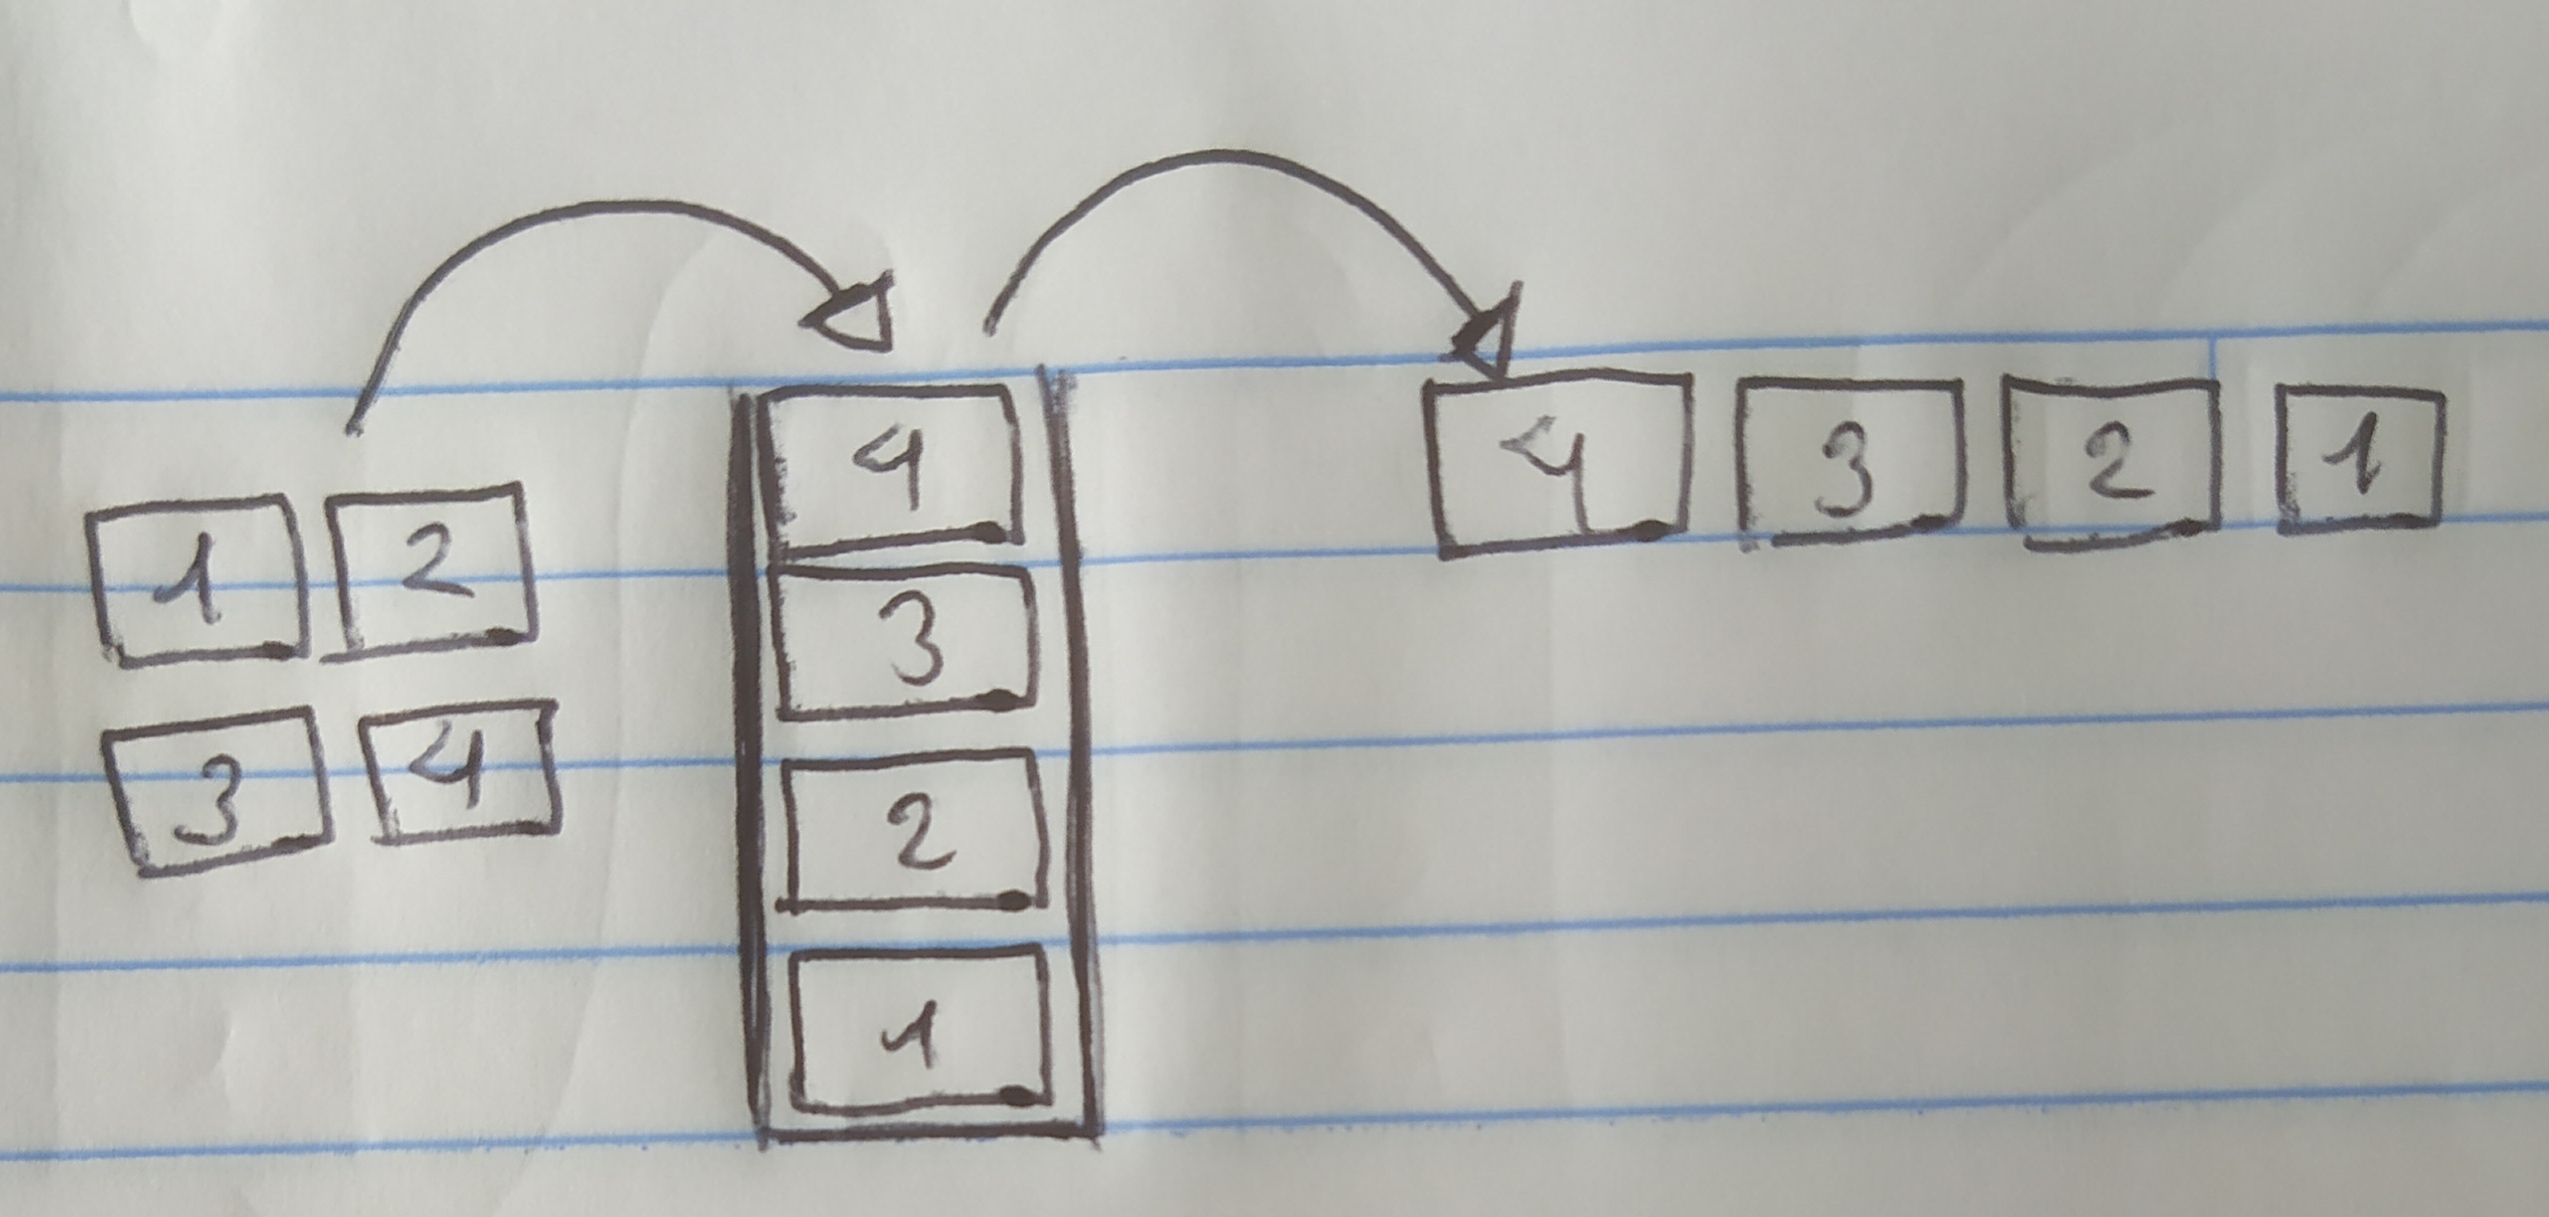 1 2
3 4
4
3
2
1
4 3 2 1